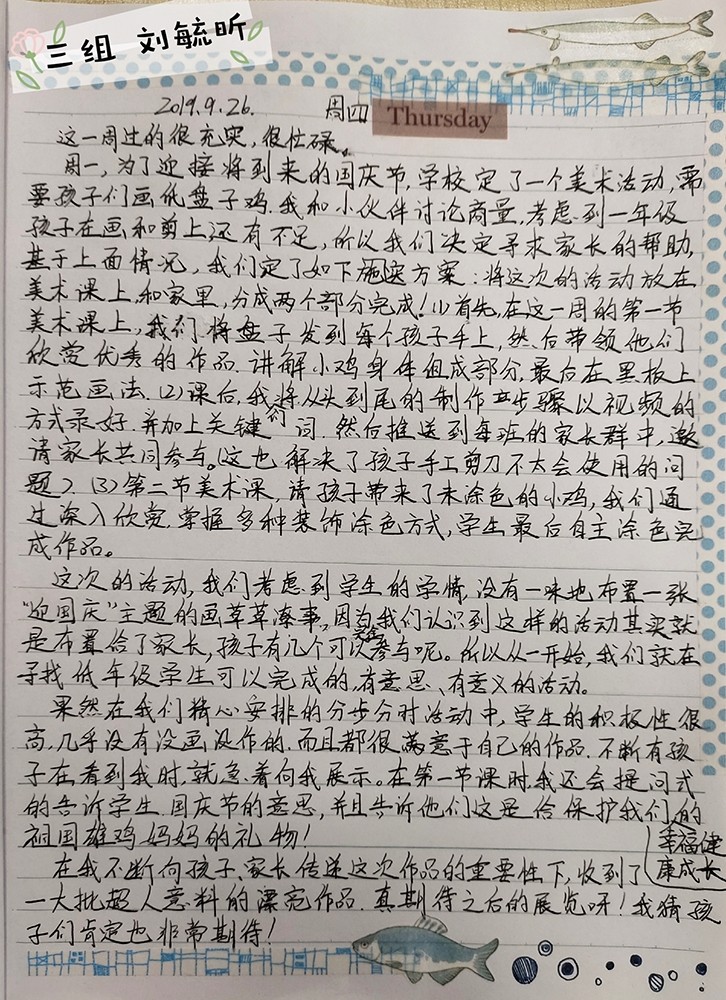 三组 刘毓昕
2019.9.26. 周四 Thursday
这一周过的很充实，很忙碌。
周一，为了迎接将到来的国庆节，学校定了一个美术活动，需
要孩子们画纸盘子鸡.我和小伙伴讨论商量，考虑到一年级
孩子在画和剪上还有不足，所以我们决定寻求家长的帮助，
基于上面情况，我们定了如下施实方案：将这次的活动放在
美术课上，和家里，分成两个部分完成！(1)首先，在这一周的第一节
美术课上，我们将盘子发到每个孩子手上，然后带领他们
欣赏优秀的作品.讲解小鸡身体组成部分，最后在黑板上
示范画法.(2)课后，我将从头到尾的制作步骤以视频的
方式录好.并加上关键词.然后推送到每班的家长群中，邀
请家长共同参与。(这也解决了孩子手工剪刀不太会使用的问
题).(3)第二节美术课，请孩子带来了未涂色的小鸡，我们通
过深入欣赏.掌握多种装饰涂色方式，学生最后自主涂色完
成作品。
这次的活动，我们考虑到学生的学情，没有一味地布置一张
“迎国庆”主题的画草草凑事，因为我们认识到这样的活动其实就
是布置给了家长，孩子有几个可以参与呢。所以从一开始，我们就在
寻找低年级学生可以完成的，有意思、有意义的活动。
果然在我们精心安排的分步分时活动中，学生的积极性很
高，几乎没有没画没作的.而且都很满意于自己的作品.不断有孩
子在看到我时，就急着向我展示。在第一节课时，我还会提问式
的告诉学生.国庆节的意思，并且告诉他们这是给保护我们的
祖国雄鸡妈妈的礼物！
幸福健
康成长
在我不断向孩子、家长传递这次作品的重要性下，收到了
一大批超人意料的漂亮作品.真期待之后的展览呀！我猜孩
子们肯定也非常期待！